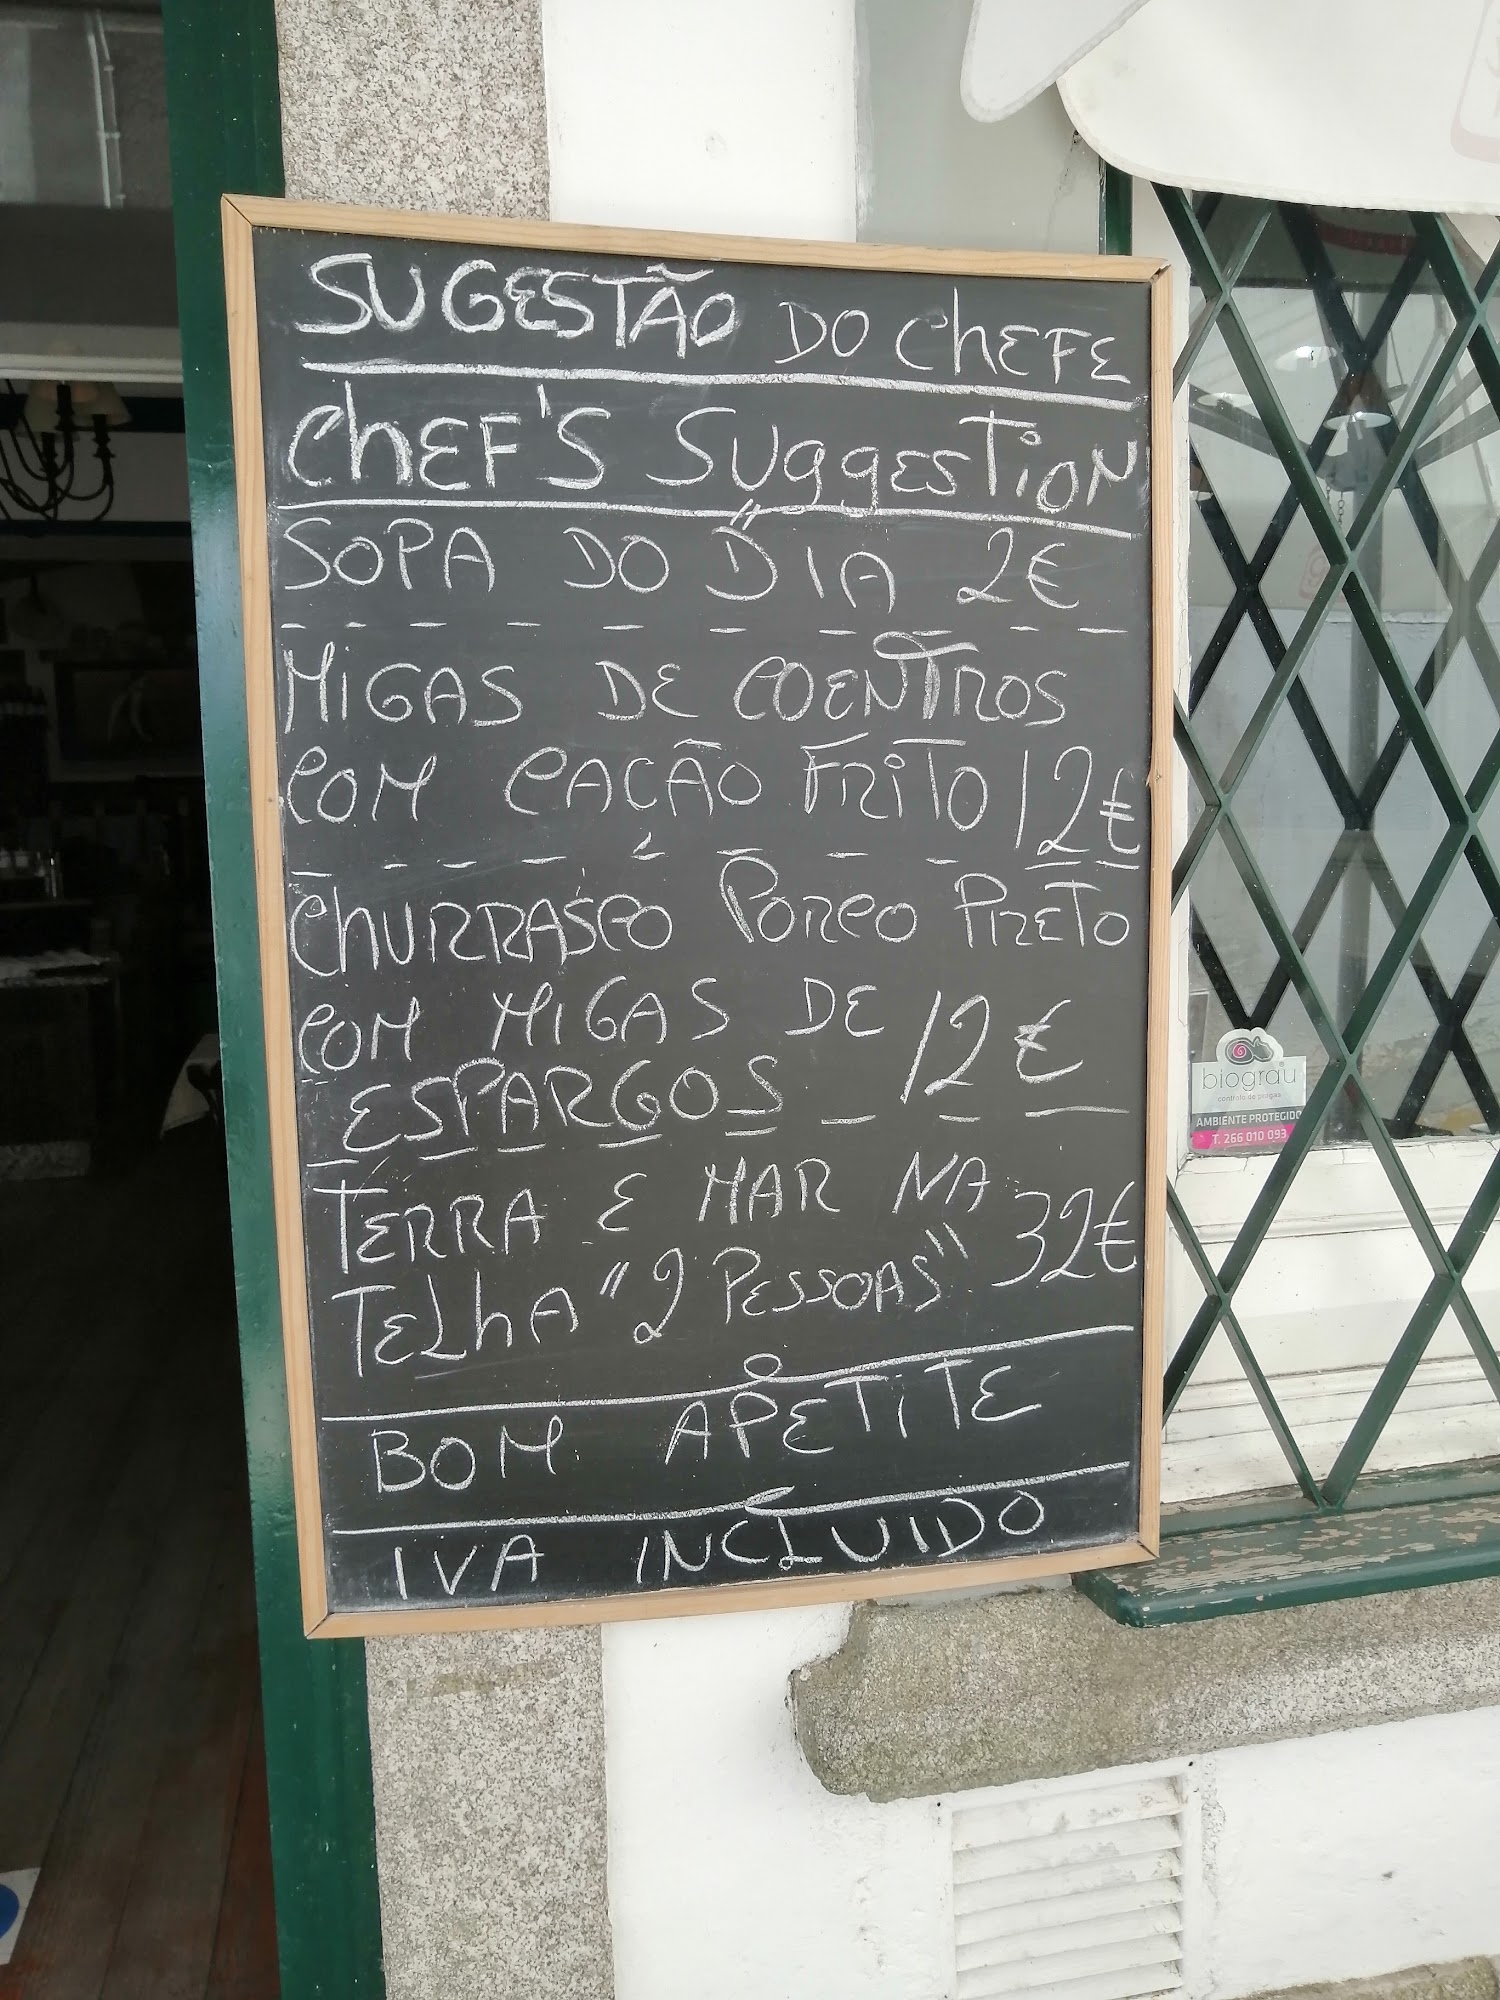 SUGESTÃO DO CHEFE
CHEF'S SUGGESTION
SOPA DO "DIA 2€
MIGAS DE COENTROS
COM CAÇÃO FRITO 12€
CHURRASCO PORCO PRETO
COM MIGAS DE
ESPARGOS 12€
TERRA E MAR NA
TELHA "2 PESSOAS" 32€
BOM APETITE
IVA INCLUIDO
biograu
controlo de pragas
AMBIENTE PROTEGIDO
T. 266 010 093